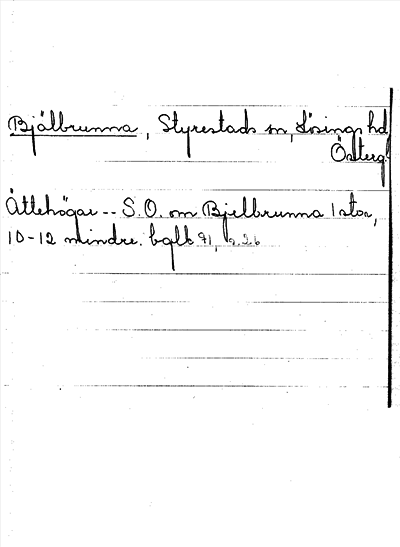 Bjälbrunna, Styrestads sn, Lösings hd
Österg.
Ättehögar -- S.O. om Bjelbrunna 1 stor,
10-12 mindre. bglb 91, s. 26